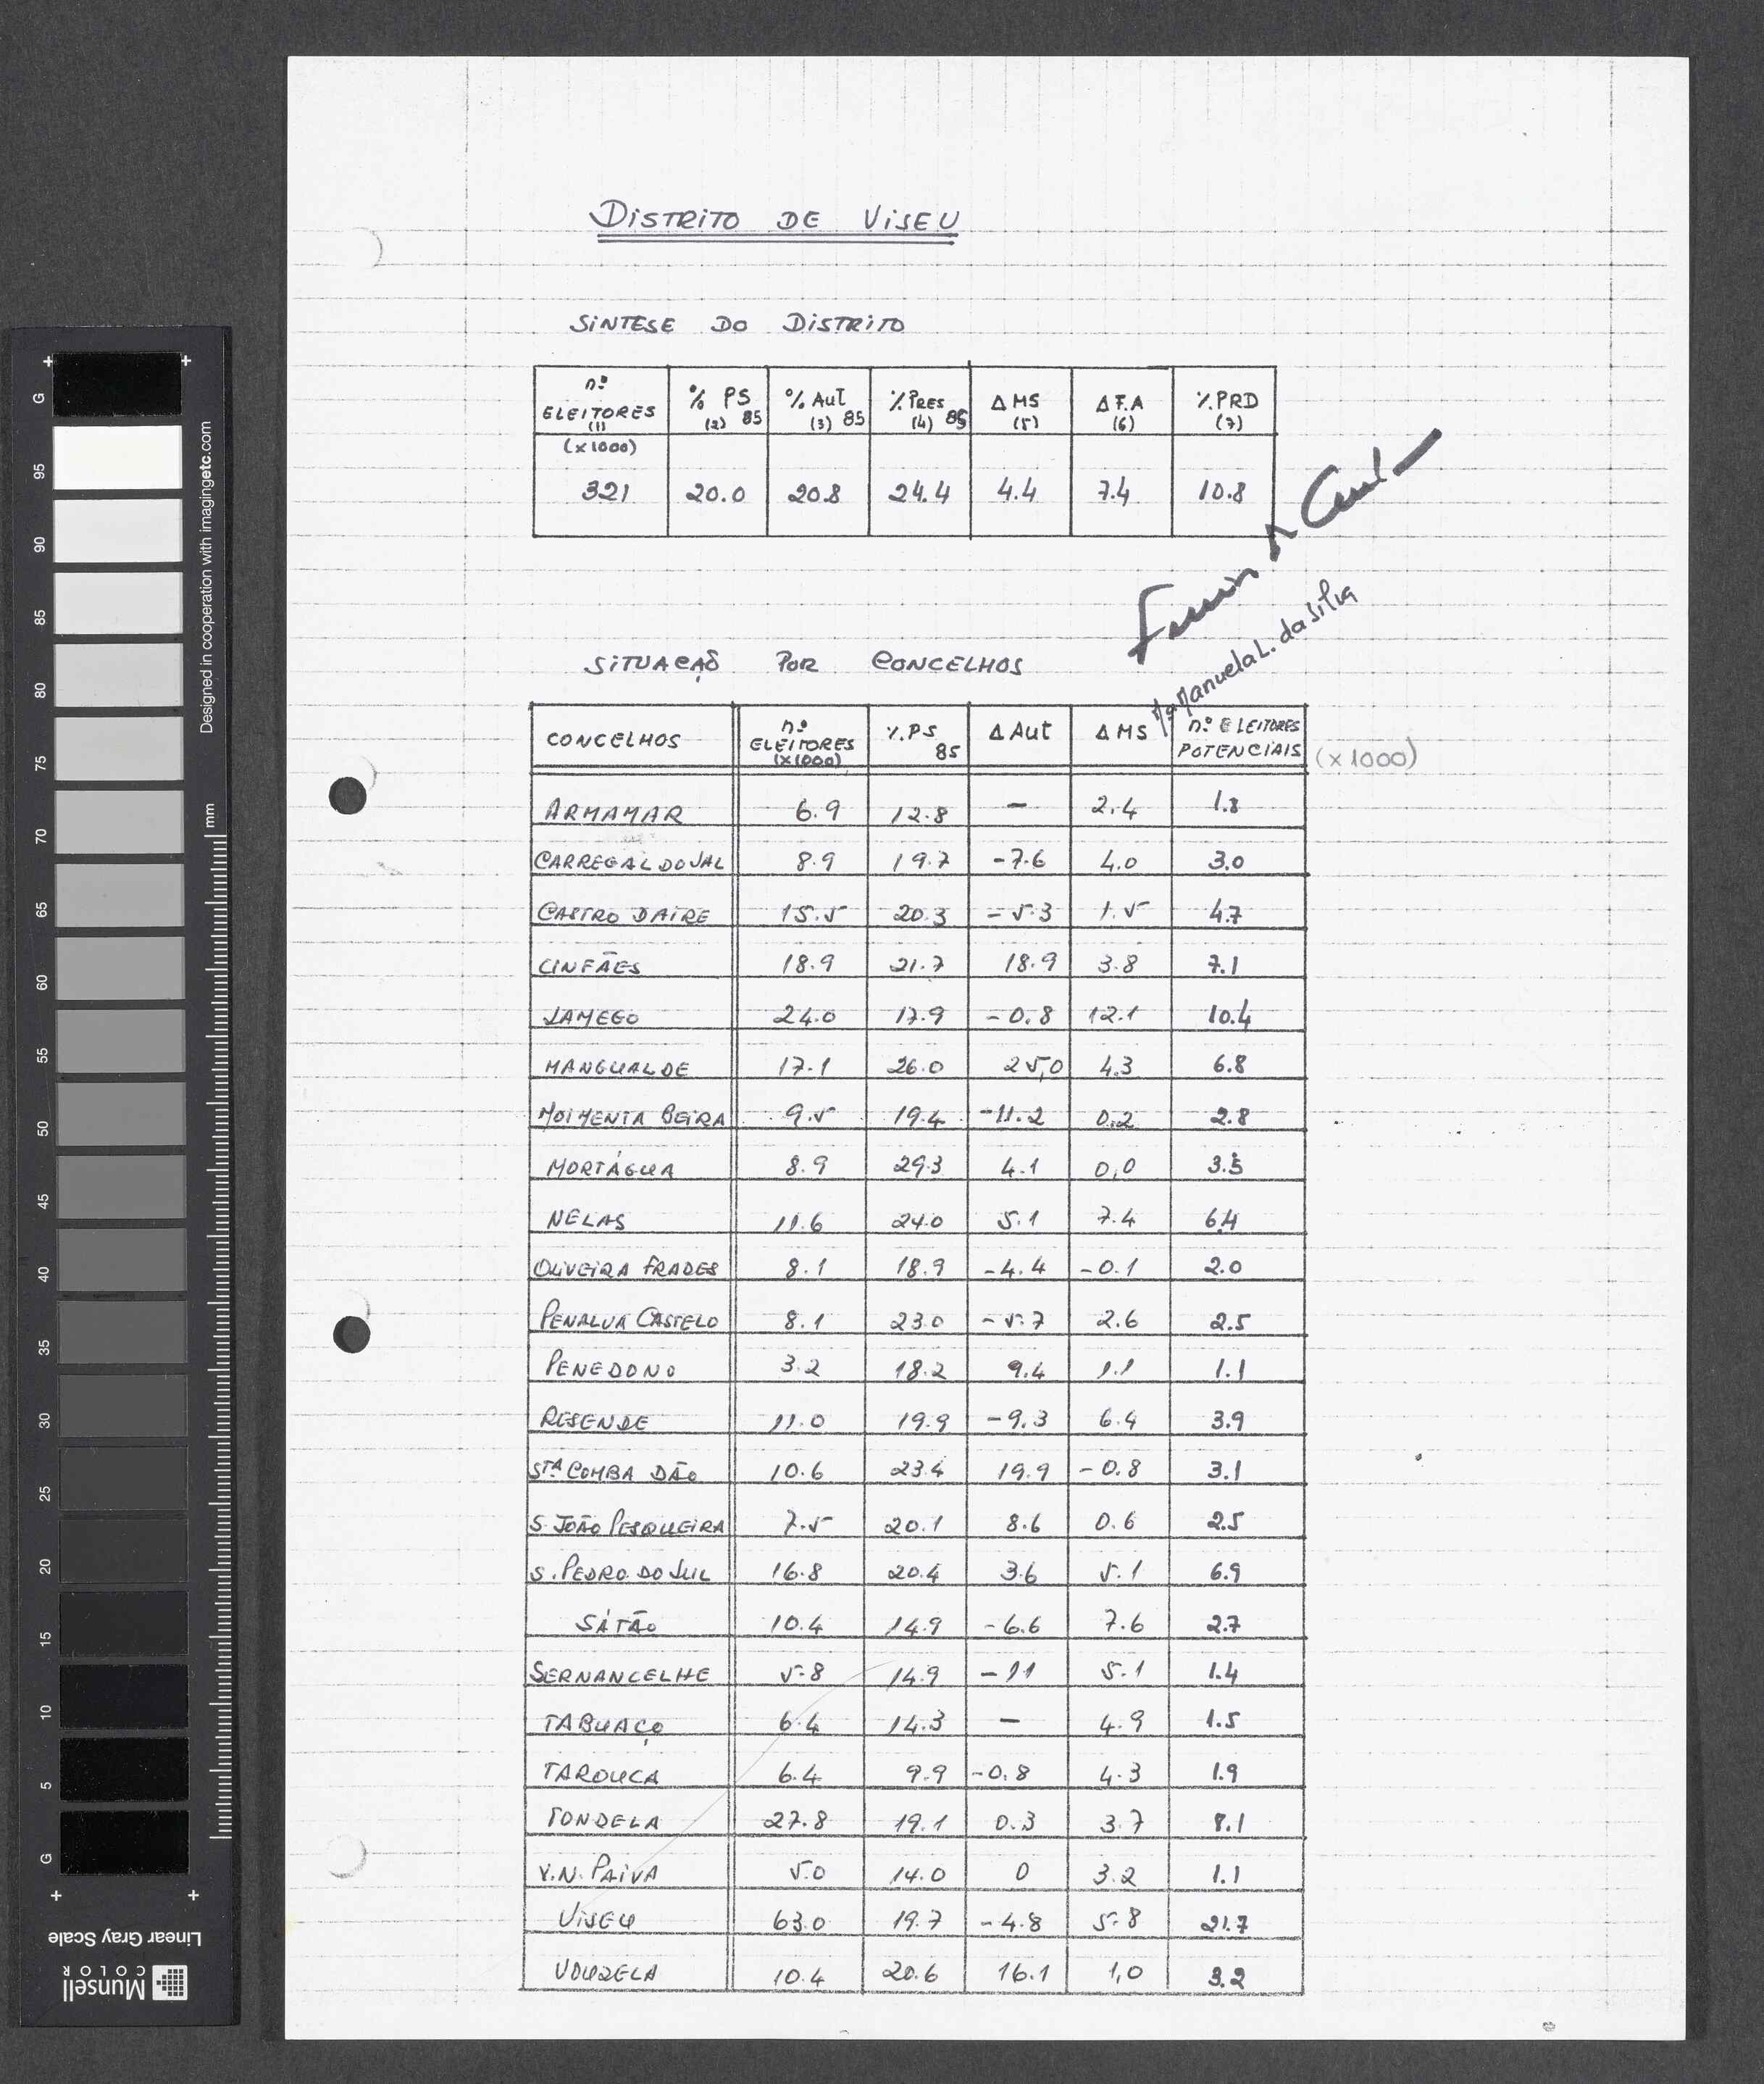 DISTRITO DE VISEU
SINTESE DO DISTRITO
nº ELEITORES (1) | % PS (2) 85 | % AUT (3) 85 | % PRES (4) 85 | Δ MS (5) | Δ F.A (6) | % PRD (7)
(x1000)
321 | 20.0 | 20.8 | 24.4 | 4.4 | 7.4 | 10.8
Mª Manuela L. da Silva
SITUAÇÃO POR CONCELHOS
CONCELHOS | nº ELEITORES (x1000) | % PS 85 | Δ AUT | Δ MS | nº ELEITORES POTENCIAIS (x1000)
ARMAMAR | 6.9 | 12.8 | – | 2.4 | 1.8
CARREGAL DO SAL | 8.9 | 19.7 | -7.6 | 4.0 | 3.0
CASTRO DAIRE | 15.5 | 20.3 | -5.3 | 1.5 | 4.7
CINFÃES | 18.9 | 21.7 | 18.9 | 3.8 | 7.1
LAMEGO | 24.0 | 17.9 | -0.8 | 12.1 | 10.4
MANGUALDE | 17.1 | 26.0 | 25,0 | 4.3 | 6.8
MOIMENTA BEIRA | 9.5 | 19.4 | -11.2 | 0.2 | 2.8
MORTÁGUA | 8.9 | 29.3 | 4.1 | 0,0 | 3.5
NELAS | 11.6 | 24.0 | 5.1 | 7.4 | 6.4
OLIVEIRA FRADES | 8.1 | 18.9 | -4.4 | -0.1 | 2.0
PENALVA CASTELO | 8.1 | 23.0 | -5.7 | 2.6 | 2.5
PENEDONO | 3.2 | 18.2 | 9.4 | 1.1 | 1.1
RESENDE | 11.0 | 19.9 | -9.3 | 6.4 | 3.9
STA COMBA DÃO | 10.6 | 23.4 | 19.9 | -0.8 | 3.1
S. JOÃO PESQUEIRA | 7.5 | 20.1 | 8.6 | 0.6 | 2.5
S. PEDRO DO SUL | 16.8 | 20.4 | 3.6 | 5.1 | 6.9
SÁTÃO | 10.4 | 14.9 | -6.6 | 7.6 | 2.7
SERNANCELHE | 5.8 | 14.9 | -11 | 5.1 | 1.4
TABUAÇO | 6.4 | 14.3 | – | 4.9 | 1.5
TAROUCA | 6.4 | 9.9 | -0.8 | 4.3 | 1.9
TONDELA | 27.8 | 19.1 | 0.3 | 3.7 | 8.1
V.N. PAIVA | 5.0 | 14.0 | 0 | 3.2 | 1.1
VISEU | 63.0 | 19.7 | -4.8 | 5.8 | 21.7
VOUZELA | 10.4 | 20.6 | 16.1 | 1,0 | 3.2
Designed in cooperation with imagingetc.com
mm
G
95
90
85
80
75
70
65
60
55
50
45
40
35
30
25
20
15
10
5
G
Linear Gray Scale
Munsell
COLOR